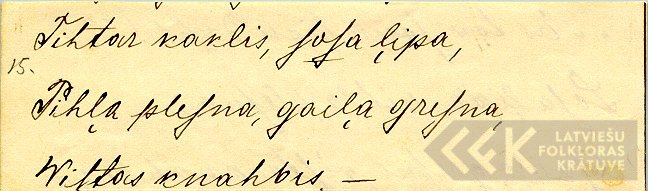 Tihtar kaklis, ſoſa ļipa,
15.
Pihļa pleſna, gaiļa greſna,
Wiſtas knahbis. —
LFK
LATVIEŠU
FOLKLORAS
KRĀTUVE